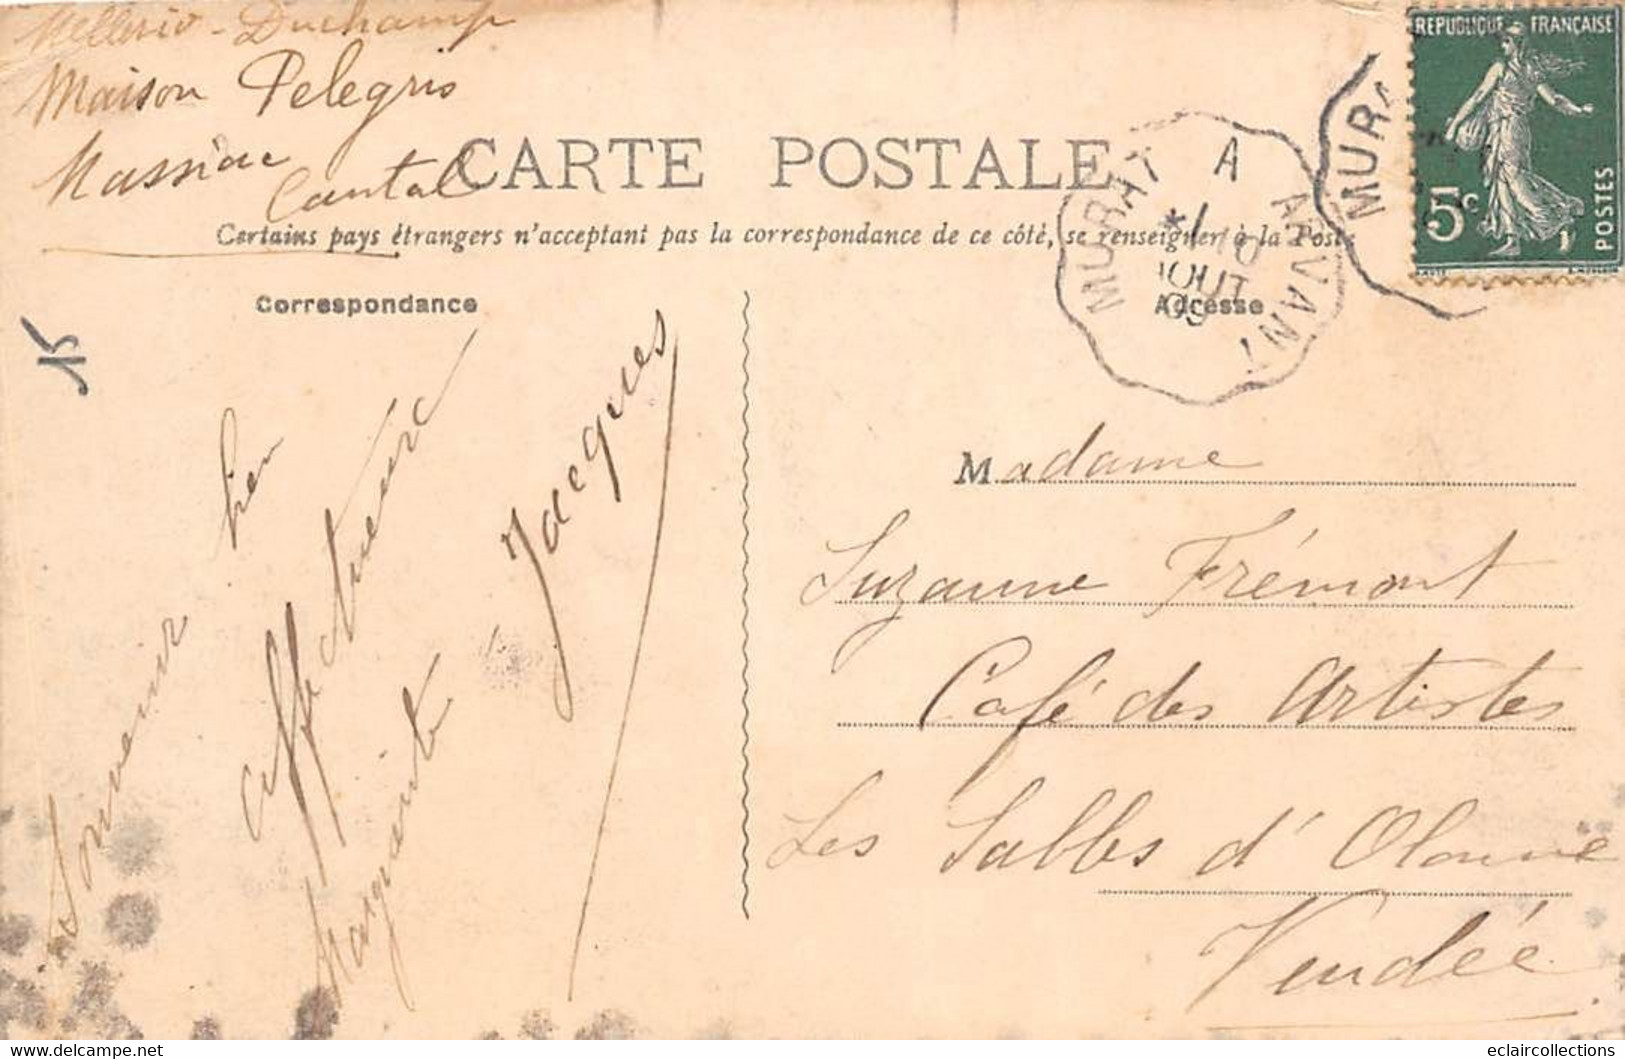 Mellerio - Duchamp
Maison Pelegris
Massiac
Cantal
CARTE POSTALE
Certains pays étrangers n'acceptent pas la correspondance de ce côté, se renseigner à la Poste
Correspondance
Adresse
15
Souvenir bien
affectueux
Marguerite - Jacques
MURAT A ARVANT
10
AOUT
09
MURA
REPUBLIQUE FRANÇAISE
5c
POSTES
Madame
Suzanne Frémont
Café des Artistes
Les Sables d'Olonne
Vendée
eclaircollections